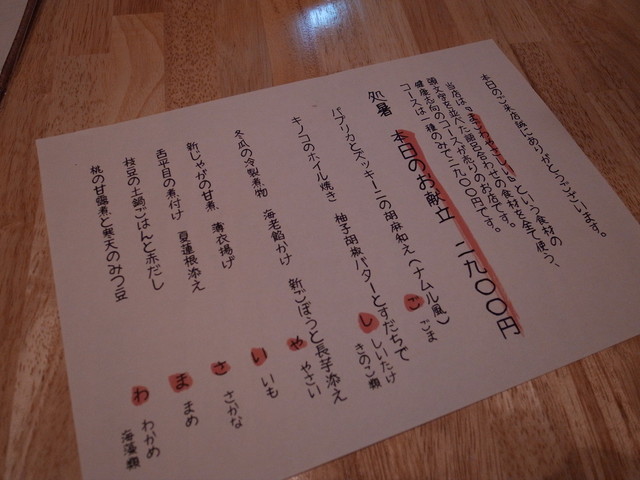 本日のご来店誠にありがとうございます。
当店は『まごわやさしい』という食材の
頭文字を並べた語呂合わせの食材を全て使う、
健康志向のコースが売りのお店です。
コースは一種のみで二九〇〇円です。
処暑 本日のお献立 二九〇〇円
パプリカとズッキーニの胡麻和え(ナムル風) ご ごま
キノコのホイル焼き 柚子胡椒バターとすだちで し しいたけ きのこ類
冬瓜の冷製煮物 海老餡かけ 新ごぼうと長芋添え や やさい
新じゃがの甘煮 薄衣揚げ い いも
舌平目の煮付け 夏蓮根添え さ さかな
枝豆の土鍋ごはんと赤だし ま まめ
桃の甘露煮と寒天のみつ豆 わ わかめ 海藻類